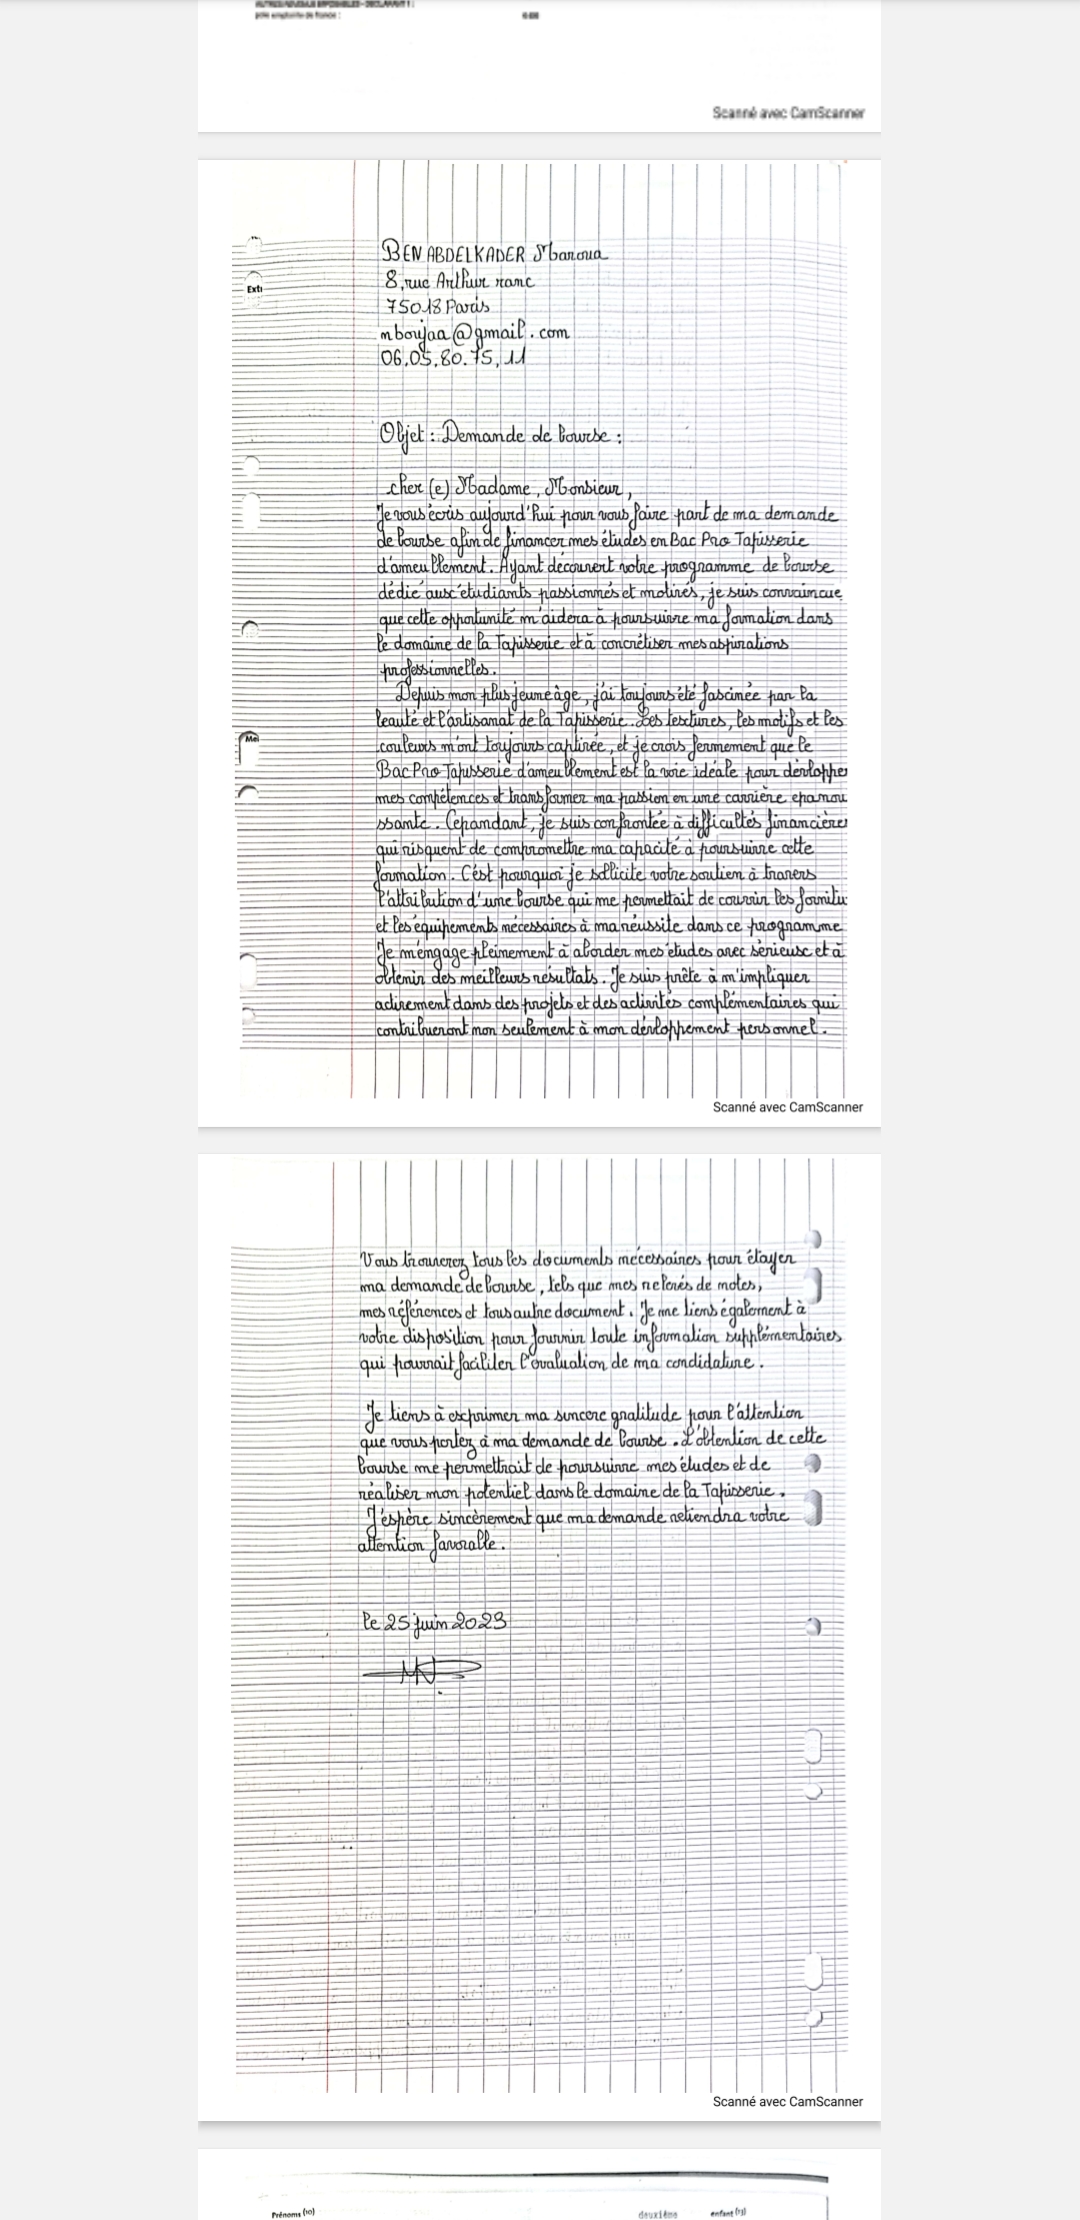 AUTRES REVENUS IMPOSABLES - DECLARANT 1 :
Scanné avec CamScanner
BEN ABDELKADER Manoua
8, rue Arthur ranc
75018 Paris
mboujaa@gmail.com
06.05.80.75.11
Objet : Demande de bourse :
cher (e) Madame, Monsieur,
Je vous écris aujourd'hui pour vous faire part de ma demande
de bourse afin de financer mes études en Bac Pro Tapisserie
d'ameublement. Ayant découvert votre programme de bourse
dédié aux étudiants passionnés et motivés, je suis convaincue
que cette opportunité m'aidera à poursuivre ma formation dans
le domaine de la Tapisserie et à concrétiser mes aspirations
professionnelles.
Depuis mon plus jeune âge, j'ai toujours été fascinée par la
beauté et l'artisanat de la Tapisserie. Les textures, les motifs et les
couleurs m'ont toujours captivée, et je crois fermement que le
Bac Pro Tapisserie d'ameublement est la voie idéale pour dévlopper
mes compétences et transformer ma passion en une carrière epanou
ssante. Cepandant, je suis confrontée à difficultés financières
qui risquent de compromettre ma capacité à poursuivre cette
formation. C'est pourquoi je sollicite votre soutien à travers
l'attribution d'une bourse qui me permettait de couvrir les fournitu
et les équipements nécessaires à ma réussite dans ce programme
Je m'engage pleinement à aborder mes études avec sérieuse et à
obtenir des meilleurs résultats. Je suis prête à m'impliquer
activement dans des projets et des activités complémentaires qui
contribueront non seulement à mon dévloppement personnel.
Scanné avec CamScanner
Vous trouverez tous les documents nécessaires pour étayer
ma demande de bourse, tels que mes relevés de notes,
mes références et tous autre document. Je me tiens également à
votre disposition pour fournir toute information supplémentaires
qui pourrait faciliter l'évaluation de ma condidature.
Je tiens à exprimer ma sincere gratitude pour l'attention
que vous portez à ma demande de bourse. L'obtention de cette
bourse me permettrait de poursuivre mes études et de
réaliser mon potentiel dans le domaine de la Tapisserie.
J'espère sincèrement que ma demande retiendra votre
attention favorable.
le 25 juin 2023
Scanné avec CamScanner
Prénoms (10) deuxième enfant (13)